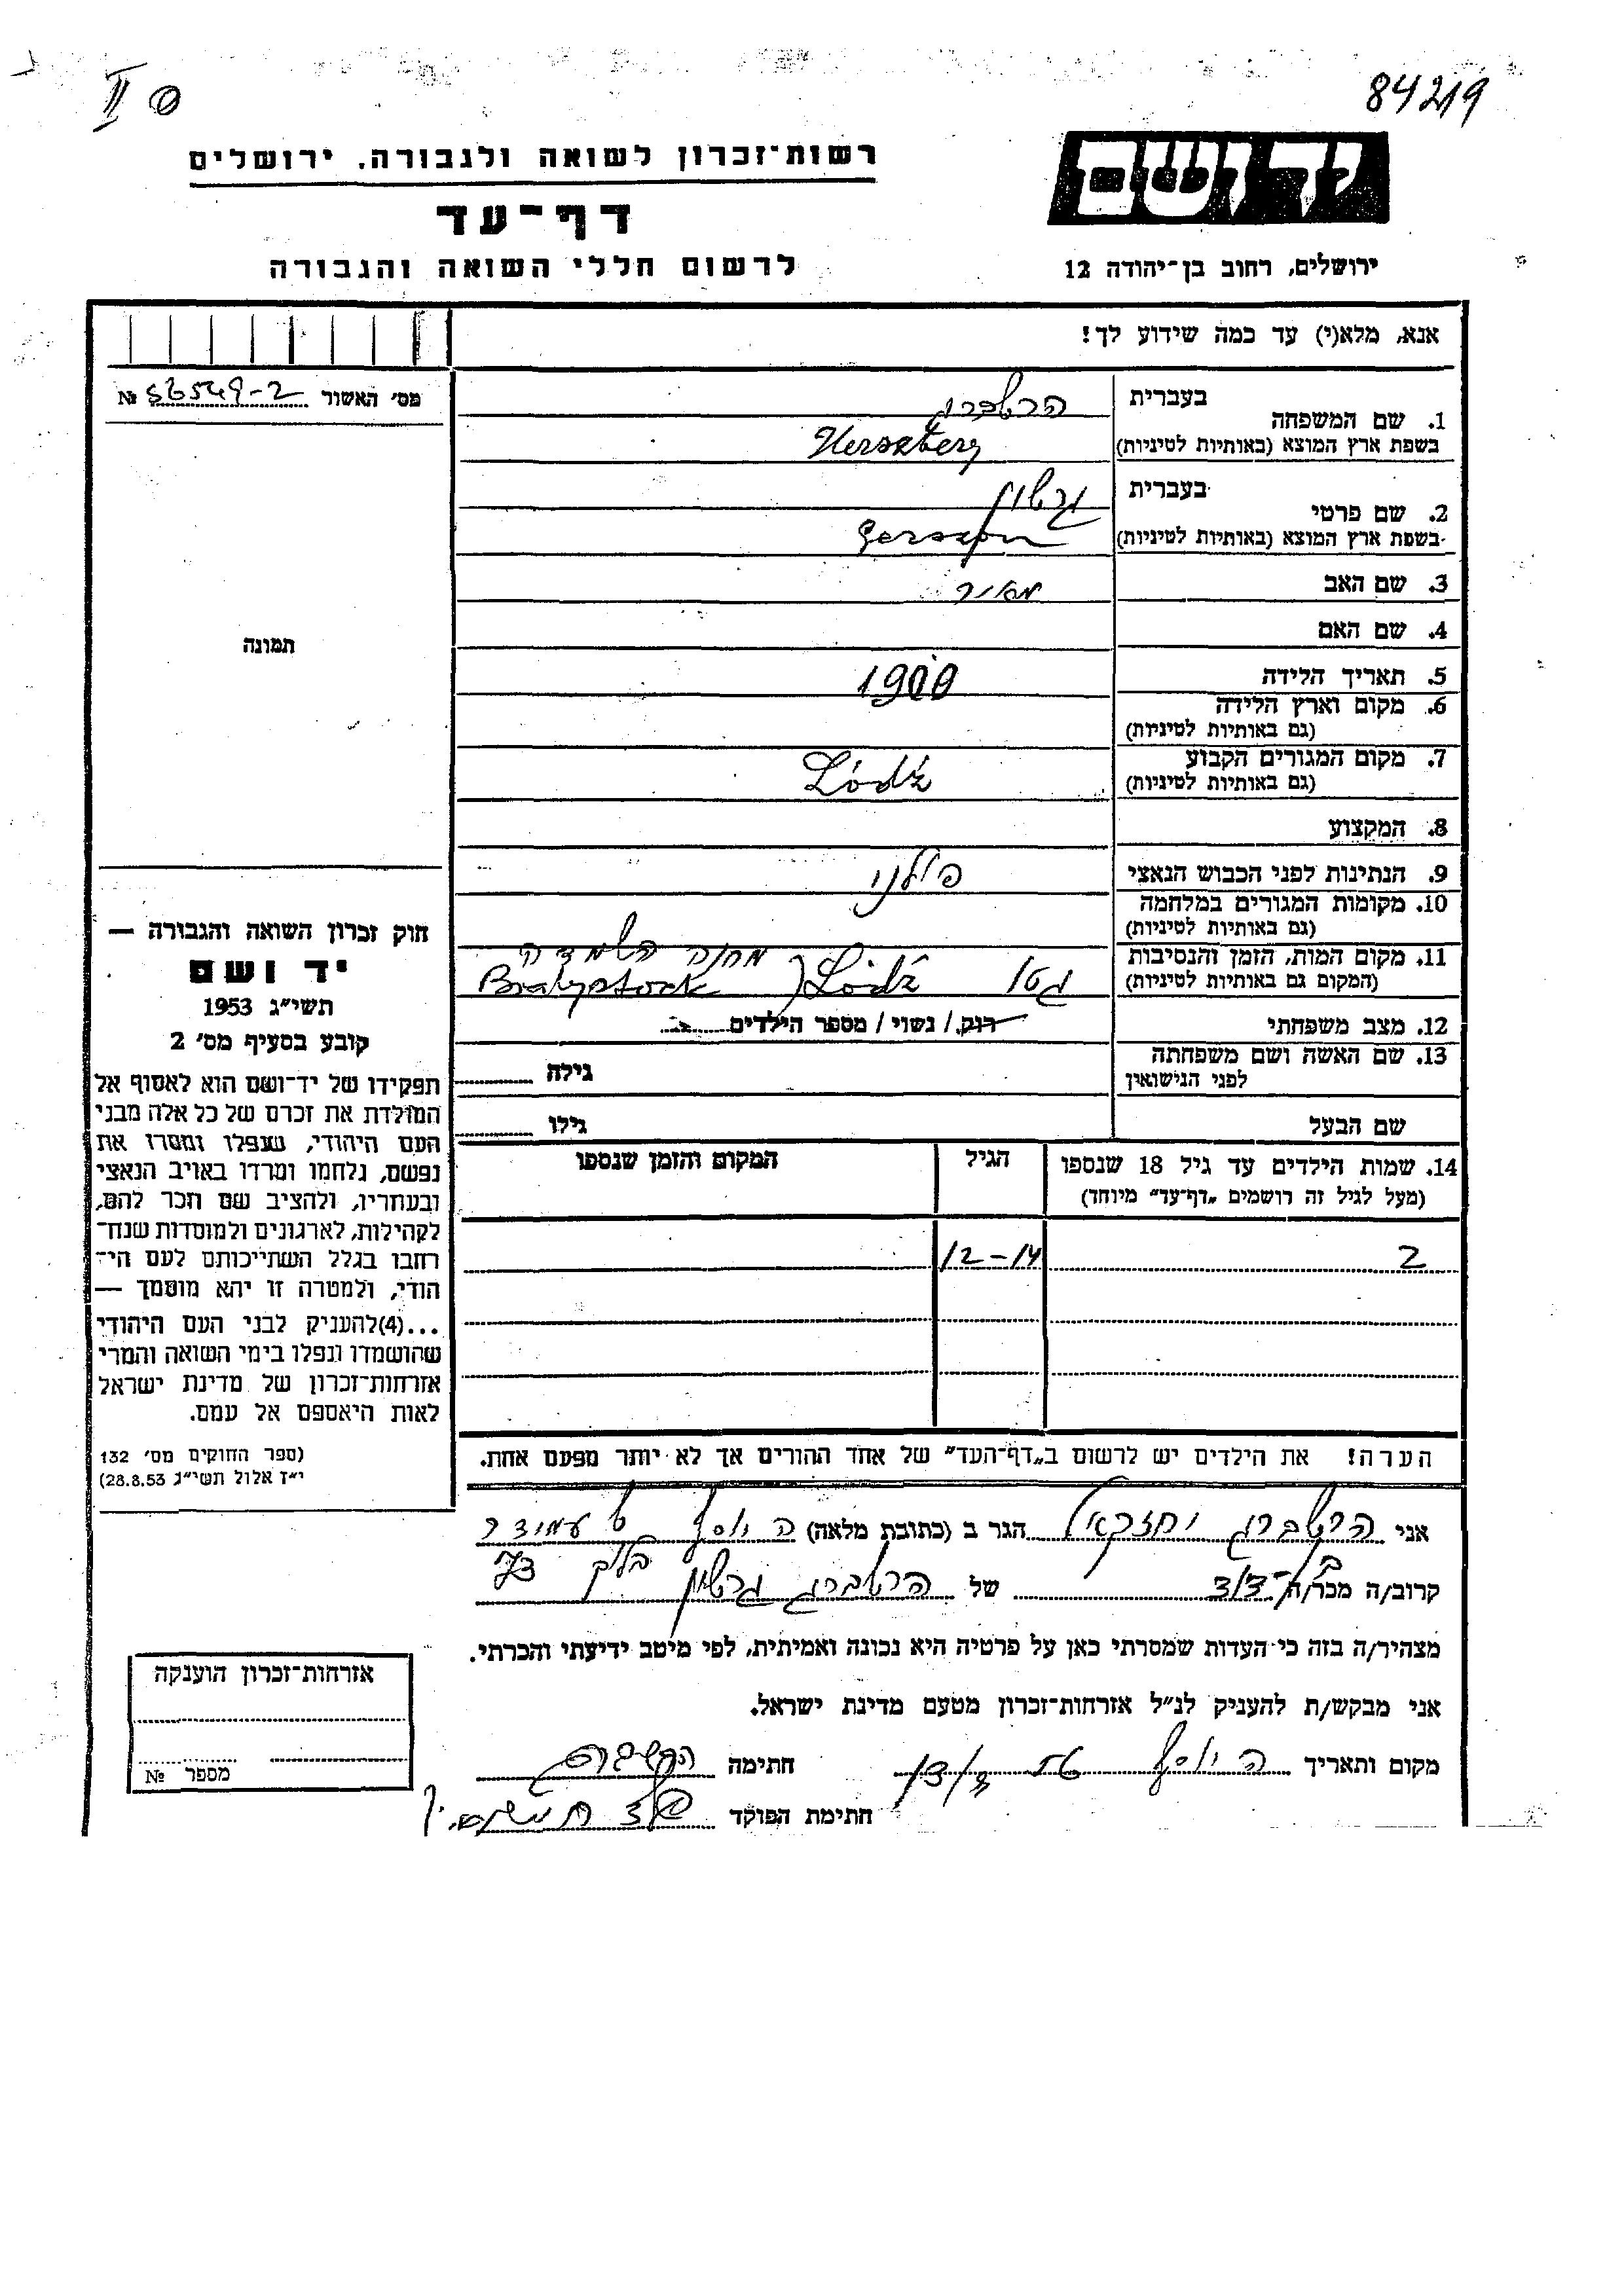 84219
II
רשות־זכרון לשואה ולגבורה, ירושלים
יד ושם
דף־עד
לרשום חללי השואה והגבורה
ירושלים, רחוב בן־יהודה 12
אנא, מלא(י) עד כמה שידוע לך!
מס׳ האשור 56549-2 №
1. שם המשפחה
בעברית הרשברג
בשפת ארץ המוצא (באותיות לטיניות) Herszberg
2. שם פרטי
בעברית גרשון
בשפת ארץ המוצא (באותיות לטיניות) Gerszon
3. שם האב מאיר
4. שם האם
תמונה
5. תאריך הלידה 1900
6. מקום וארץ הלידה
(גם באותיות לטיניות)
7. מקום המגורים הקבוע
(גם באותיות לטיניות) Łódź
8. המקצוע
9. הנתינות לפני הכבוש הנאצי פולני
10. מקומות המגורים במלחמה
(גם באותיות לטיניות)
11. מקום המות, הזמן והנסיבות מחנה השמדה
(המקום גם באותיות לטיניות) גטו Łódź
12. מצב משפחתי רוק / נשוי / מספר הילדים
13. שם האשה ושם משפחתה
לפני הנישואין גילה
שם הבעל גילו
14. שמות הילדים עד גיל 18 שנספו הגיל המקום והזמן שנספו
(מעל לגיל זה רושמים „דף־עד״ מיוחד)
2 12-14
הערה! את הילדים יש לרשום ב„דף־העד״ של אחד ההורים אך לא יותר מפעם אחת.
חוק זכרון השואה והגבורה —
יד ושם
תשי״ג 1953
קובע בסעיף מס׳ 2
תפקידו של יד־ושם הוא לאסוף אל
המולדת את זכרם של כל אלה מבני
העם היהודי, שנפלו ומסרו את
נפשם, נלחמו ומרדו באויב הנאצי
ובעוזריו, ולהציב שם וזכר להם,
לקהילות, לארגונים ולמוסדות שנח־
רבו בגלל השתייכותם לעם הי־
הודי, ולמטרה זו יהא מוסמך —
...(4)להעניק לבני העם היהודי
שהושמדו ונפלו בימי השואה והמרי
אזרחות־זכרון של מדינת ישראל
לאות היאספם אל עמם.
(ספר החוקים מס׳ 132
י״ז אלול תשי״ג 28.8.53)
אני הרשברג יחזקאל הגר ב (כתובת מלאה) עמידר
בלוק 73
קרוב/ה מכר/ה בן-דוד של הרשברג גרשון
מצהיר/ה בזה כי העדות שמסרתי כאן על פרטיה היא נכונה ואמיתית, לפי מיטב ידיעתי והכרתי.
אני מבקש/ת להעניק לנ״ל אזרחות־זכרון מטעם מדינת ישראל.
מקום ותאריך חתימה הרשברג
חתימת הפוקד
אזרחות־זכרון הוענקה
מספר №